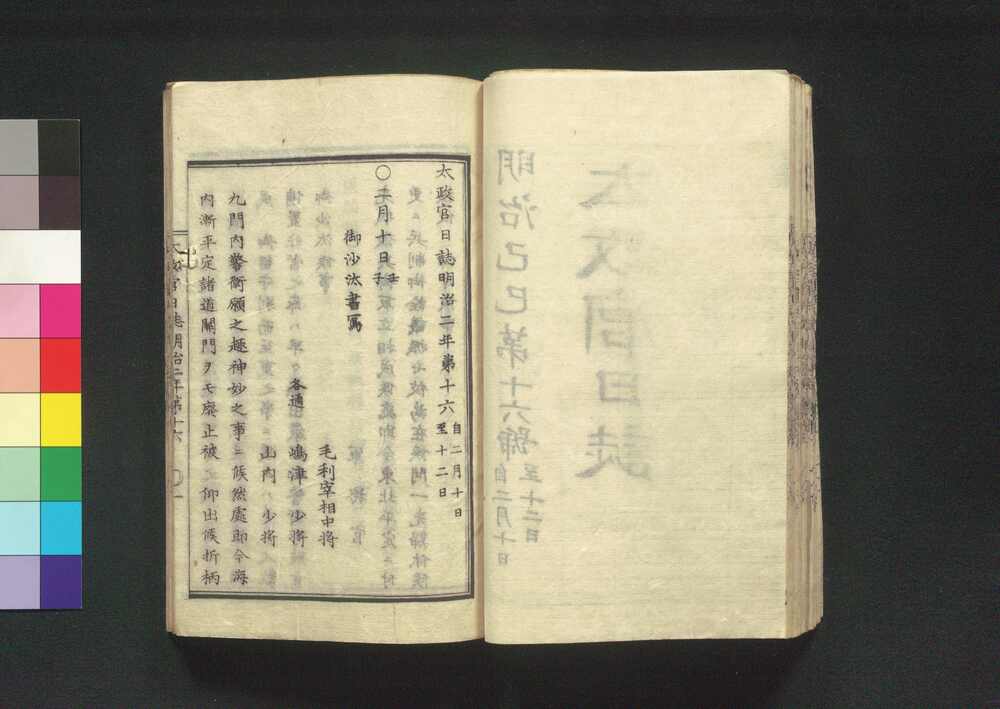 太政官日誌明治二年第十六 自二月十日 至十二日
〇二月十日壬子
御沙汰書寫
毛利宰相中将
各通 嶋津少将
山内少将
九門内警衛願之趣神妙之事ニ候然處即今海
内漸平定諸道關門ヲモ廢止被 仰出候折柄
太政官日誌明治二年第十六
明治己巳第十六號 自二月十日 至十二日
太政官日誌